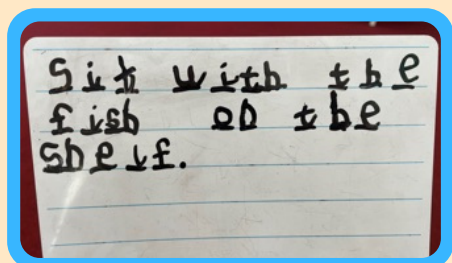 Sit with the
fish on the
shelf.